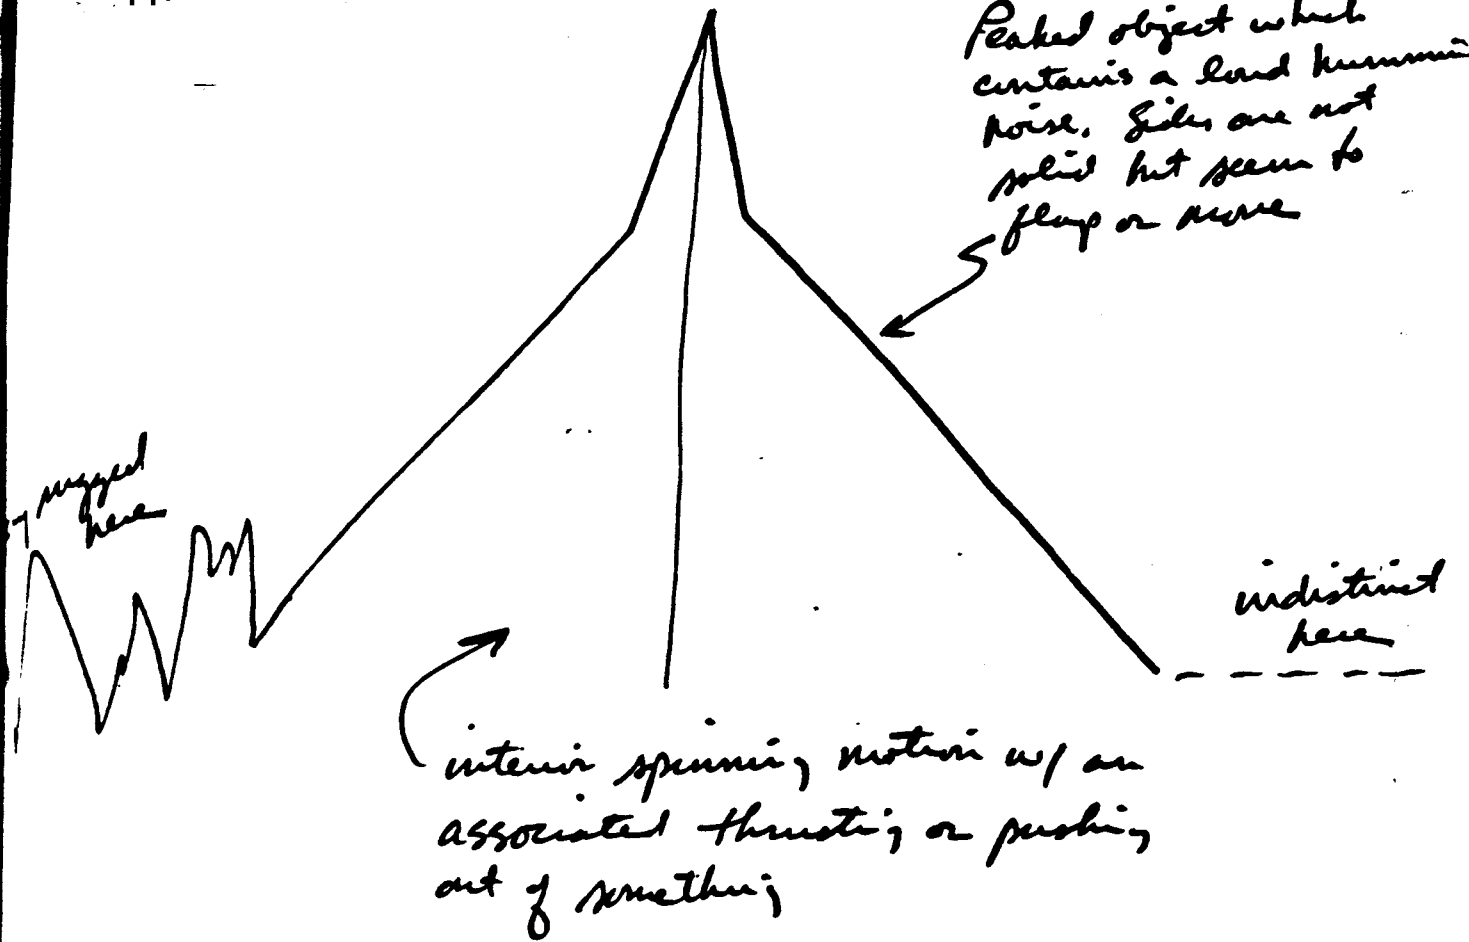 Peaked object which
contains a loud hummin
noise. Sides are not
solid but seem to
flap or move
rugged
here
indistinct
here
interior spinning motion w/ an
associated thrusting or pushing
out of something